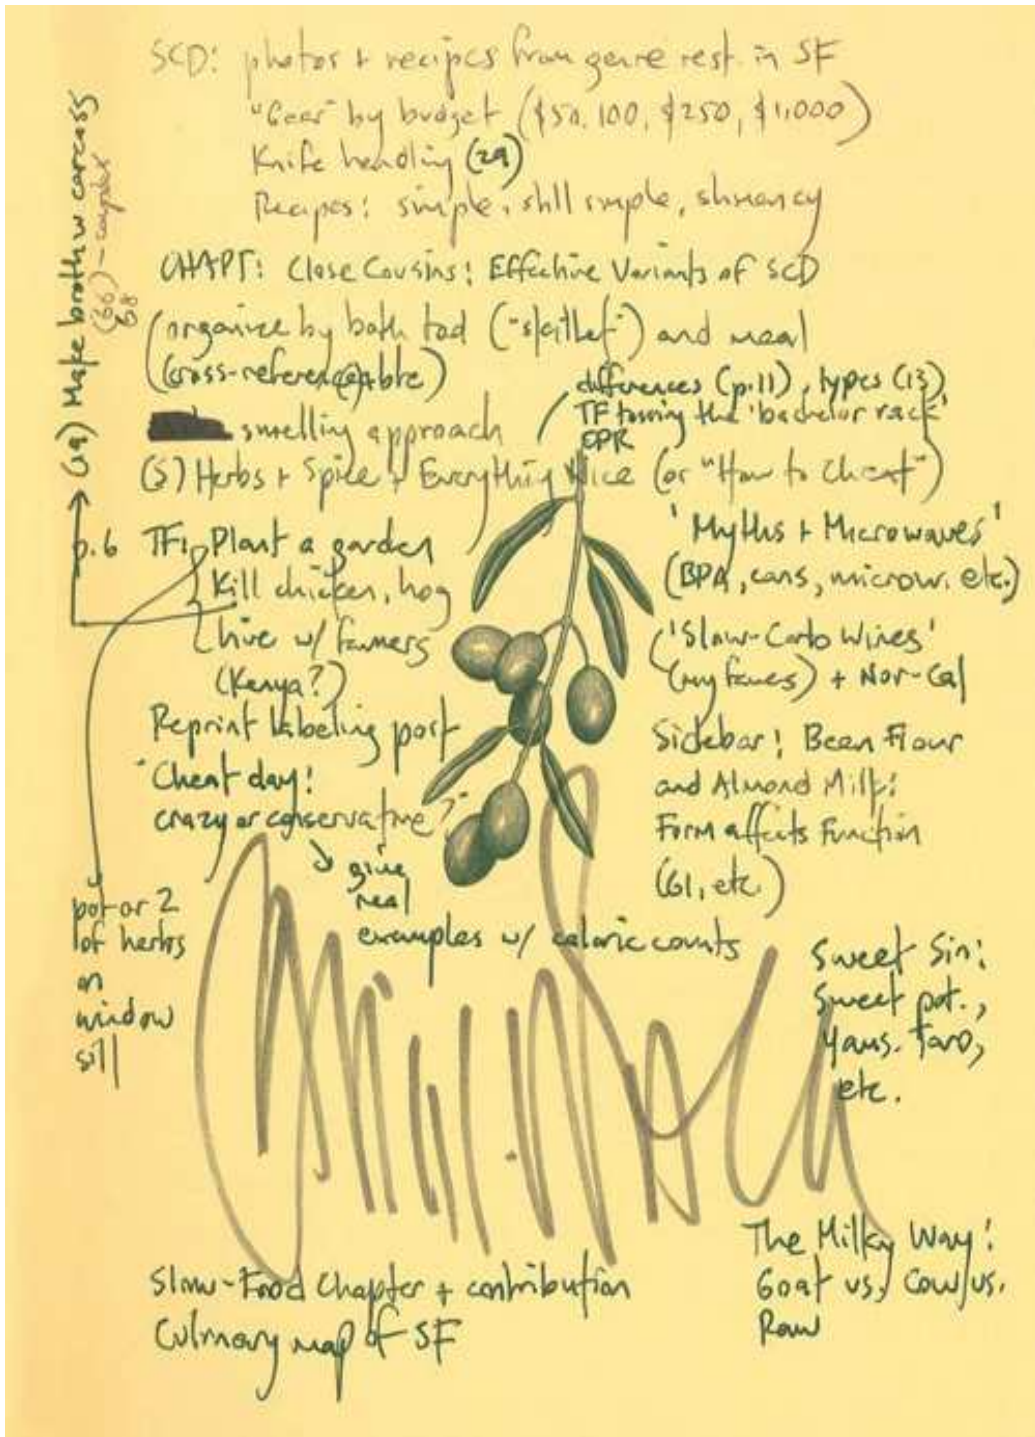 SCD: photos + recipes from genre rest. in SF
"Gear" by budget ($50, 100, $250, $1,000)
Knife handling (29)
Recipes: simple, still simple, shmancy
CHAPT: Close Cousins: Effective Variants of SCD
(organize by both tool ("skillet") and meal
(cross-referenceable)
smelling approach
differences (p.11), types (13),
TF tossing the 'bachelor rack'
CPR
(5) Herbs + Spice + Everything Nice (or "How to Cheat")
p.6 TF: Plant a garden
Kill chicken, hog
live w/ farmers
(Kenya?)
Reprint labeling post
Cheat day:
crazy or conservative?
give
real
examples w/ caloric counts
'Myths + Microwaves'
(BPA, cans, microw. etc.)
'Slow-Carb Wines'
(my faves) + Nor-Cal
Sidebar: Bean Flour
and Almond Milk:
Form affects Function
(GI, etc.)
Sweet Sin:
Sweet pot.,
Yams. Taro,
etc.
pot or 2
of herbs
on
window
sill
(19) Make broth w carcass
(66) - complex
68
The Milky Way:
Goat vs, Cow vs.
Raw
Slow-Food Chapter + contribution
Culinary map of SF